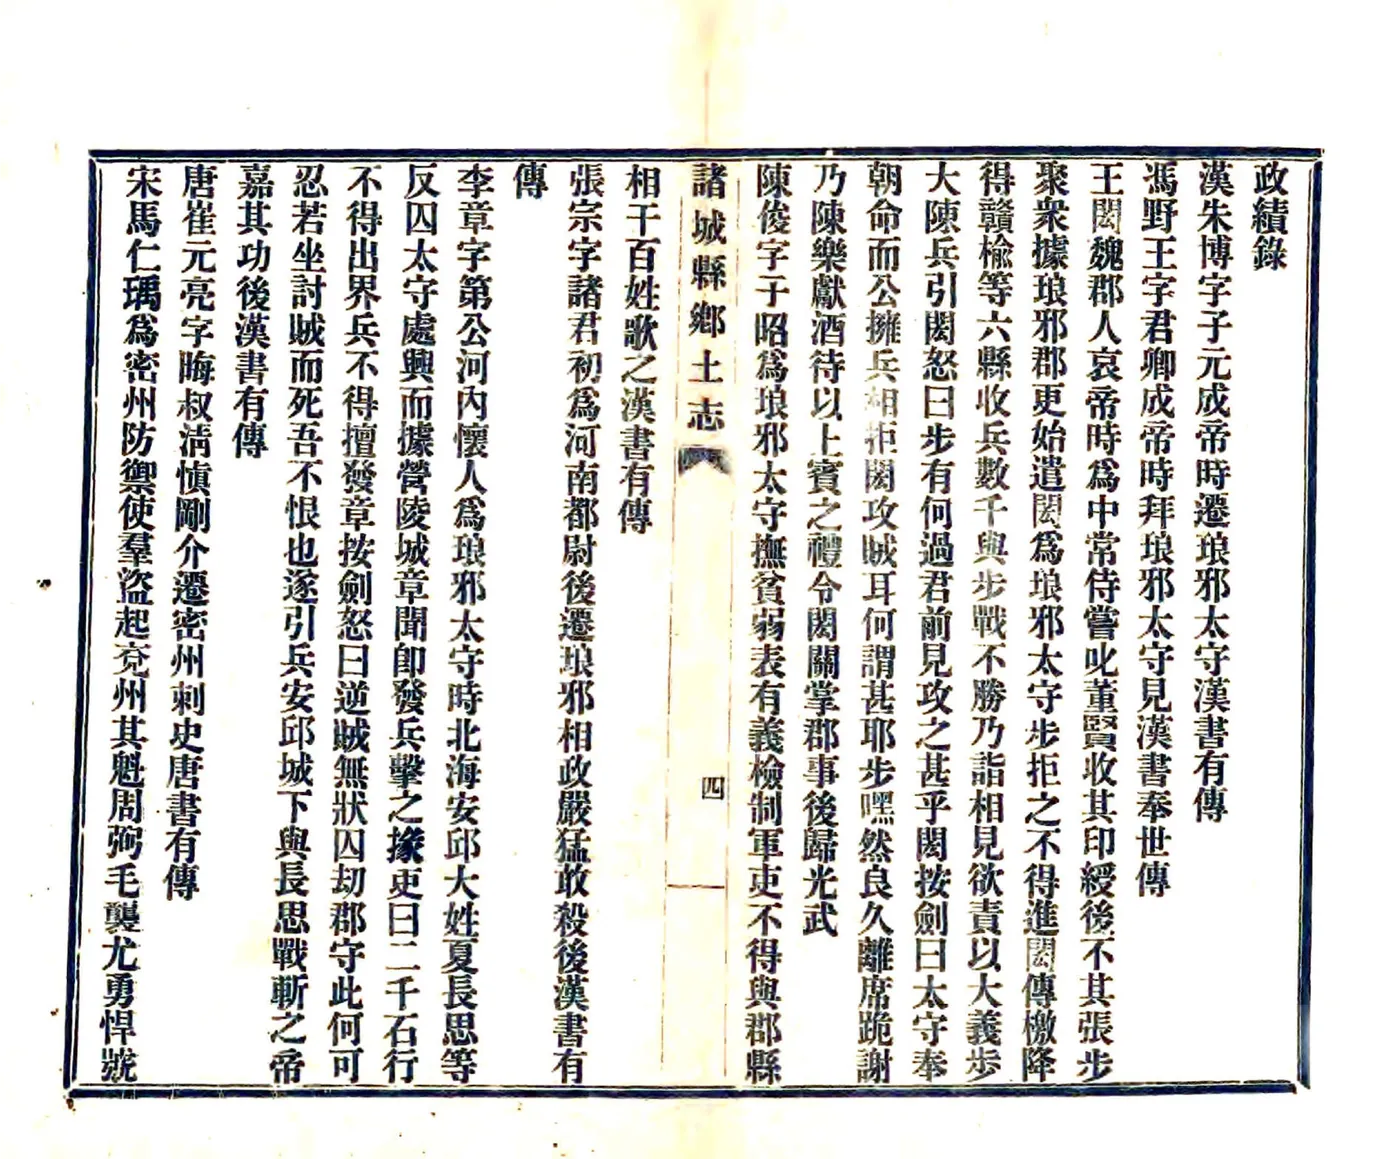 政績錄
漢朱博字子元成帝時遷琅邪太守漢書有傳
馮野王字君卿成帝時拜琅邪太守見漢書奉世傳
王閎魏郡人哀帝時爲中常侍嘗叱董賢收其印綬後不其張步
聚衆據琅邪郡更始遣閎爲琅邪太守步拒之不得進閎傳檄降
得贛楡等六縣收兵數千與步戰不勝乃詣相見欲責以大義步
大陳兵引閎怒曰步有何過君前見攻之甚乎閎按劍曰太守奉
朝命而公擁兵相拒閎攻賊耳何謂甚耶步嘿然良久離席跪謝
乃陳樂獻酒待以上賓之禮令閎關掌郡事後歸光武
陳俊字子昭爲琅邪太守撫貧弱表有義檢制軍吏不得與郡縣
諸城縣鄉土志
四
相干百姓歌之漢書有傳
張宗字諸君初爲河南都尉後遷琅邪相政嚴猛敢殺後漢書有
傳
李章字第公河內懷人爲琅邪太守時北海安邱大姓夏長思等
反囚太守處興而據營陵城章聞卽發兵擊之掾吏曰二千石行
不得出界兵不得擅發章按劍怒曰逆賊無狀囚劫郡守此何可
忍若坐討賊而死吾不恨也遂引兵安邱城下與長思戰斬之帝
嘉其功後漢書有傳
唐崔元亮字晦叔淸愼剛介遷密州刺史唐書有傳
宋馬仁瑀爲密州防禦使羣盜起兗州其魁周弼毛襲尤勇悍號